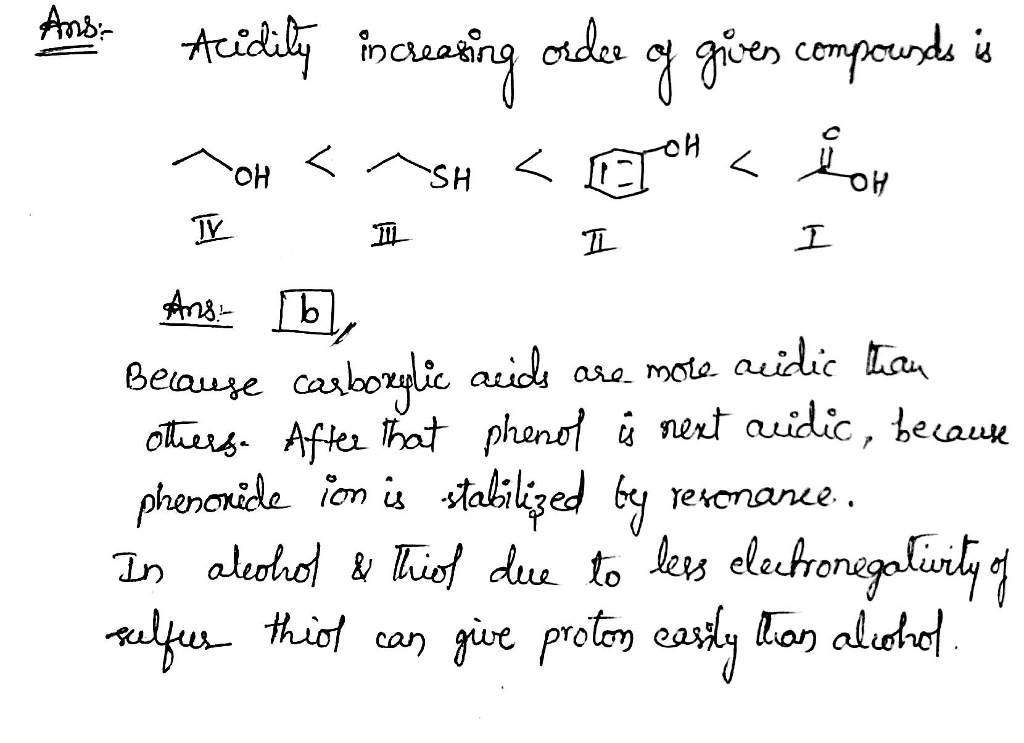 Ans:-
Acidity increasing order of given compounds is
OH < SH < OH < O OH
IV III II I
Ans:- b
Because carboxylic acids are more acidic than
others. After that phenol is next acidic, because
phenoxide ion is stabilized by resonance..
In alcohol & Thiol due to less electronegativity of
sulfur thiol can give proton easily than alcohol.